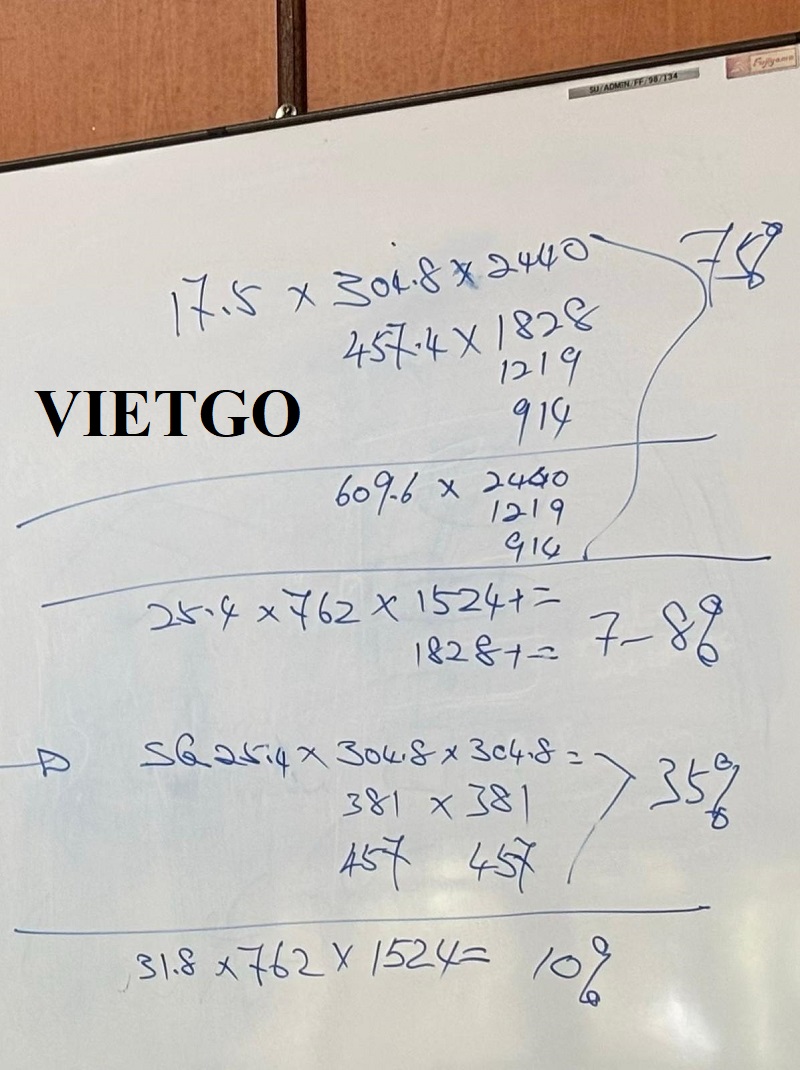 SU/ADMIN/FF/98/134
Fujiyama
17.5 x 304.8 x 2440
75%
457.4 x 1828
1219
914
VIETGO
609.6 x 2440
1219
914
25.4 x 762 x 1524+=
1828+=
7-8%
SQ 25.4 x 304.8 x 304.8 =
381 x 381
35%
457 457
31.8 x 762 x 1524= 10%